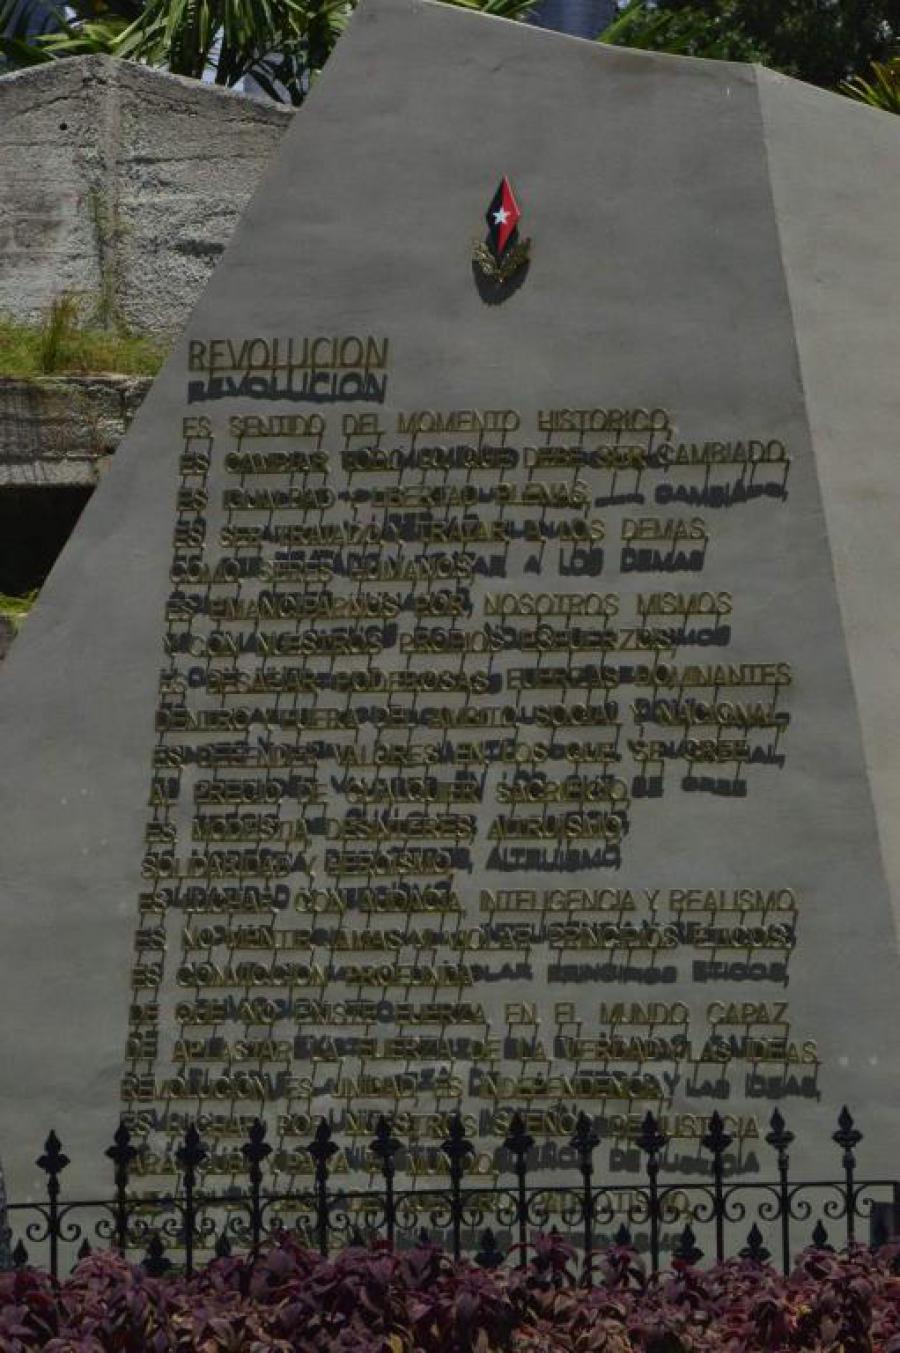 REVOLUCION
ES SENTIDO DEL MOMENTO HISTORICO,
ES CAMBIAR TODO LO QUE DEBE SER CAMBIADO,
ES IGUALDAD Y LIBERTAD PLENAS,
ES SER TRATADO Y TRATAR A LOS DEMAS
COMO SERES HUMANOS,
ES EMANCIPARNOS POR NOSOTROS MISMOS
Y CON NUESTROS PROPIOS ESFUERZOS,
ES DESAFIAR PODEROSAS FUERZAS DOMINANTES
DENTRO Y FUERA DEL AMBITO SOCIAL Y NACIONAL,
ES DEFENDER VALORES EN LOS QUE SE CREE AL
AL PRECIO DE CUALQUIER SACRIFICIO,
ES MODESTIA, DESINTERES, ALTRUISMO,
SOLIDARIDAD Y HEROISMO,
ES LUCHAR CON AUDACIA, INTELIGENCIA Y REALISMO,
ES NO MENTIR JAMAS NI VIOLAR PRINCIPIOS ETICOS,
ES CONVICCION PROFUNDA
DE QUE NO EXISTE FUERZA EN EL MUNDO CAPAZ
DE APLASTAR LA FUERZA DE LA VERDAD Y LAS IDEAS.
REVOLUCION ES UNIDAD, ES INDEPENDENCIA,
ES LUCHAR POR NUESTROS SUEÑOS DE JUSTICIA
PARA CUBA Y PARA EL MUNDO,
PATRIOTISMO,